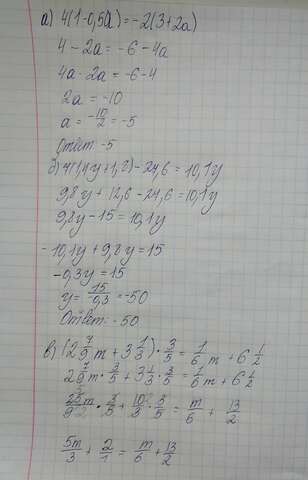 а) 4(1-0,5a)=-2(3+2a)
4-2a=-6-4a
4a-2a=-6-4
2a=-10
a=-10/2=-5
Ответ -5
(1,4y+1,8)-24,6=10,1y
9,8y+12,6-24,6=10,1y
9,8y-15=10,1y
-10,1y+9,8y=15
-0,3y=15
y=15/-0,3=-50
Ответ:-50
в) (2 7/9 m + 3 1/3)·3/5=1/6 m + 6 1/2
2 7/9 m·3/5+3 1/3·3/5=1/6 m+6 1/2
25m/9·3/5+10/3·3/5=m/6+13/2
5m/3+2/1=m/6+13/2